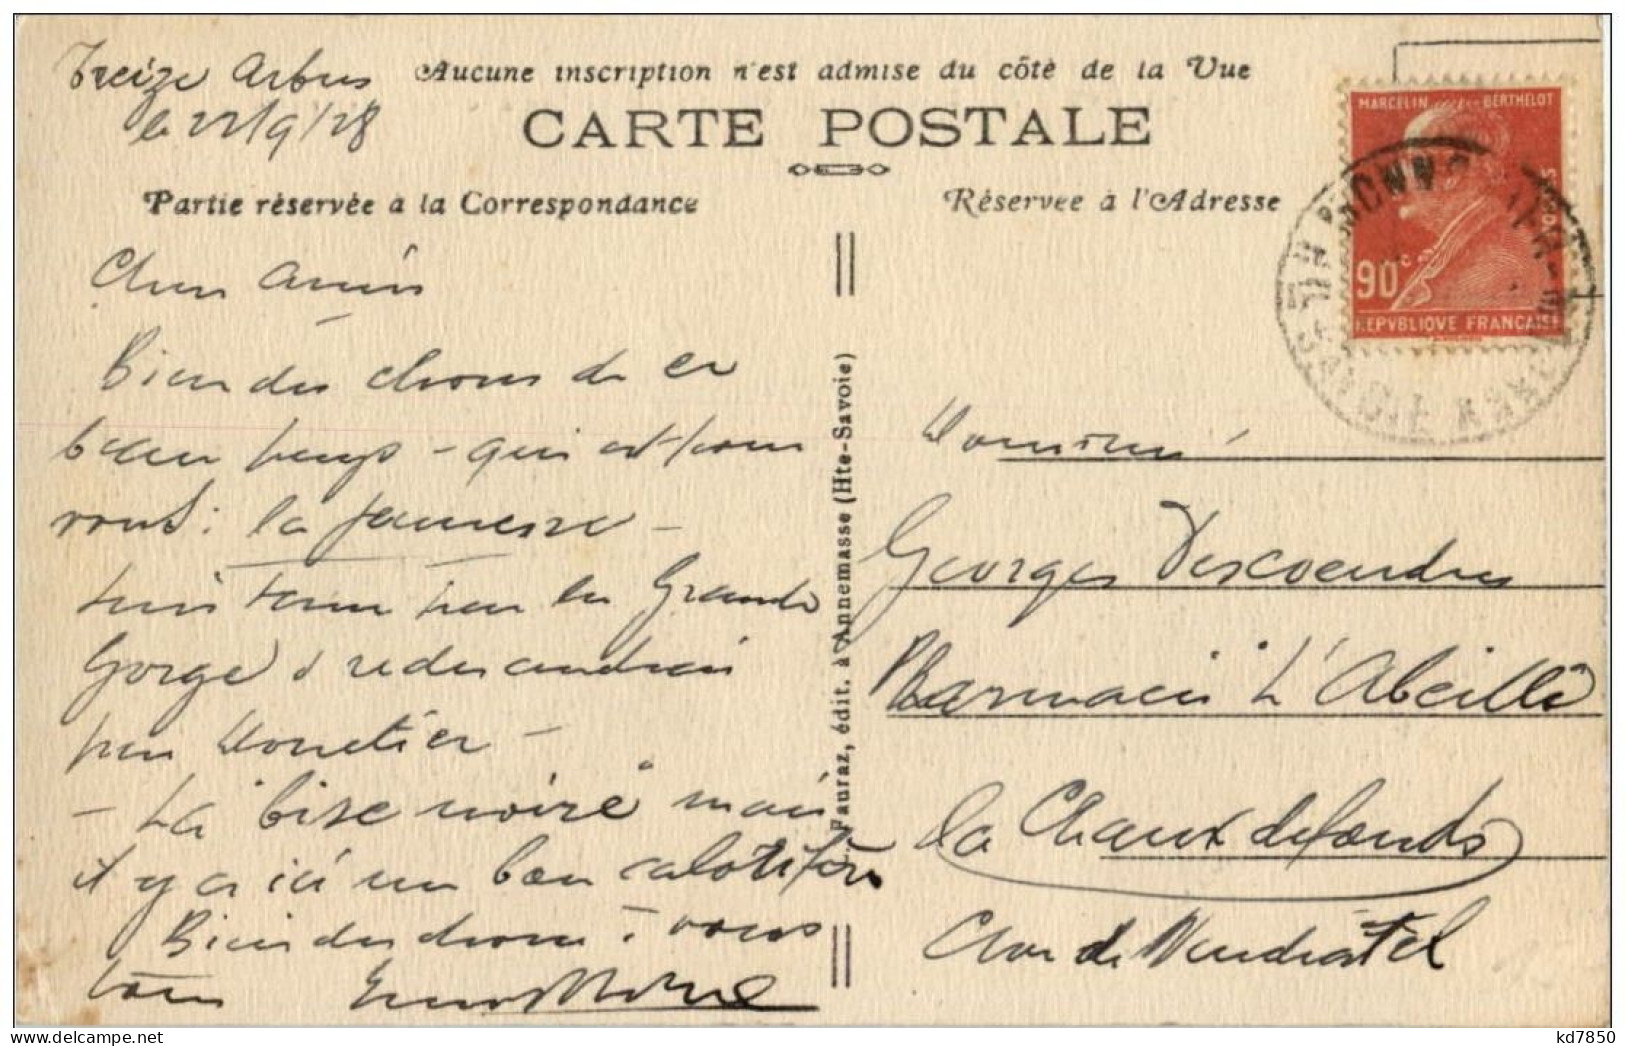 Treize Arbres
le 22/9/28
Aucune inscription n'est admise du côté de la Vue
CARTE POSTALE
Partie réservée à la Correspondance
Réservée à l'Adresse
MARCELIN BERTHELOT
90c
REPVBLIQVE FRANÇAISE
HTE SAVOIE
Chers Amis
Bien des choses de ce
beau temps - qui est pour
vous : la jeunesse -
par la Grande
Gorge & redescendrai
par Monetier -
- La "bise noire" mais
il y a ici un bon calorifère
Bien des choses à vous
tous
Pauraz, édit. à Annemasse (Hte-Savoie)
Monsieur
Georges Descoeudres
Pharmacie L'Abeille
La Chaux de fonds
Cton de Neuchâtel
kd7850